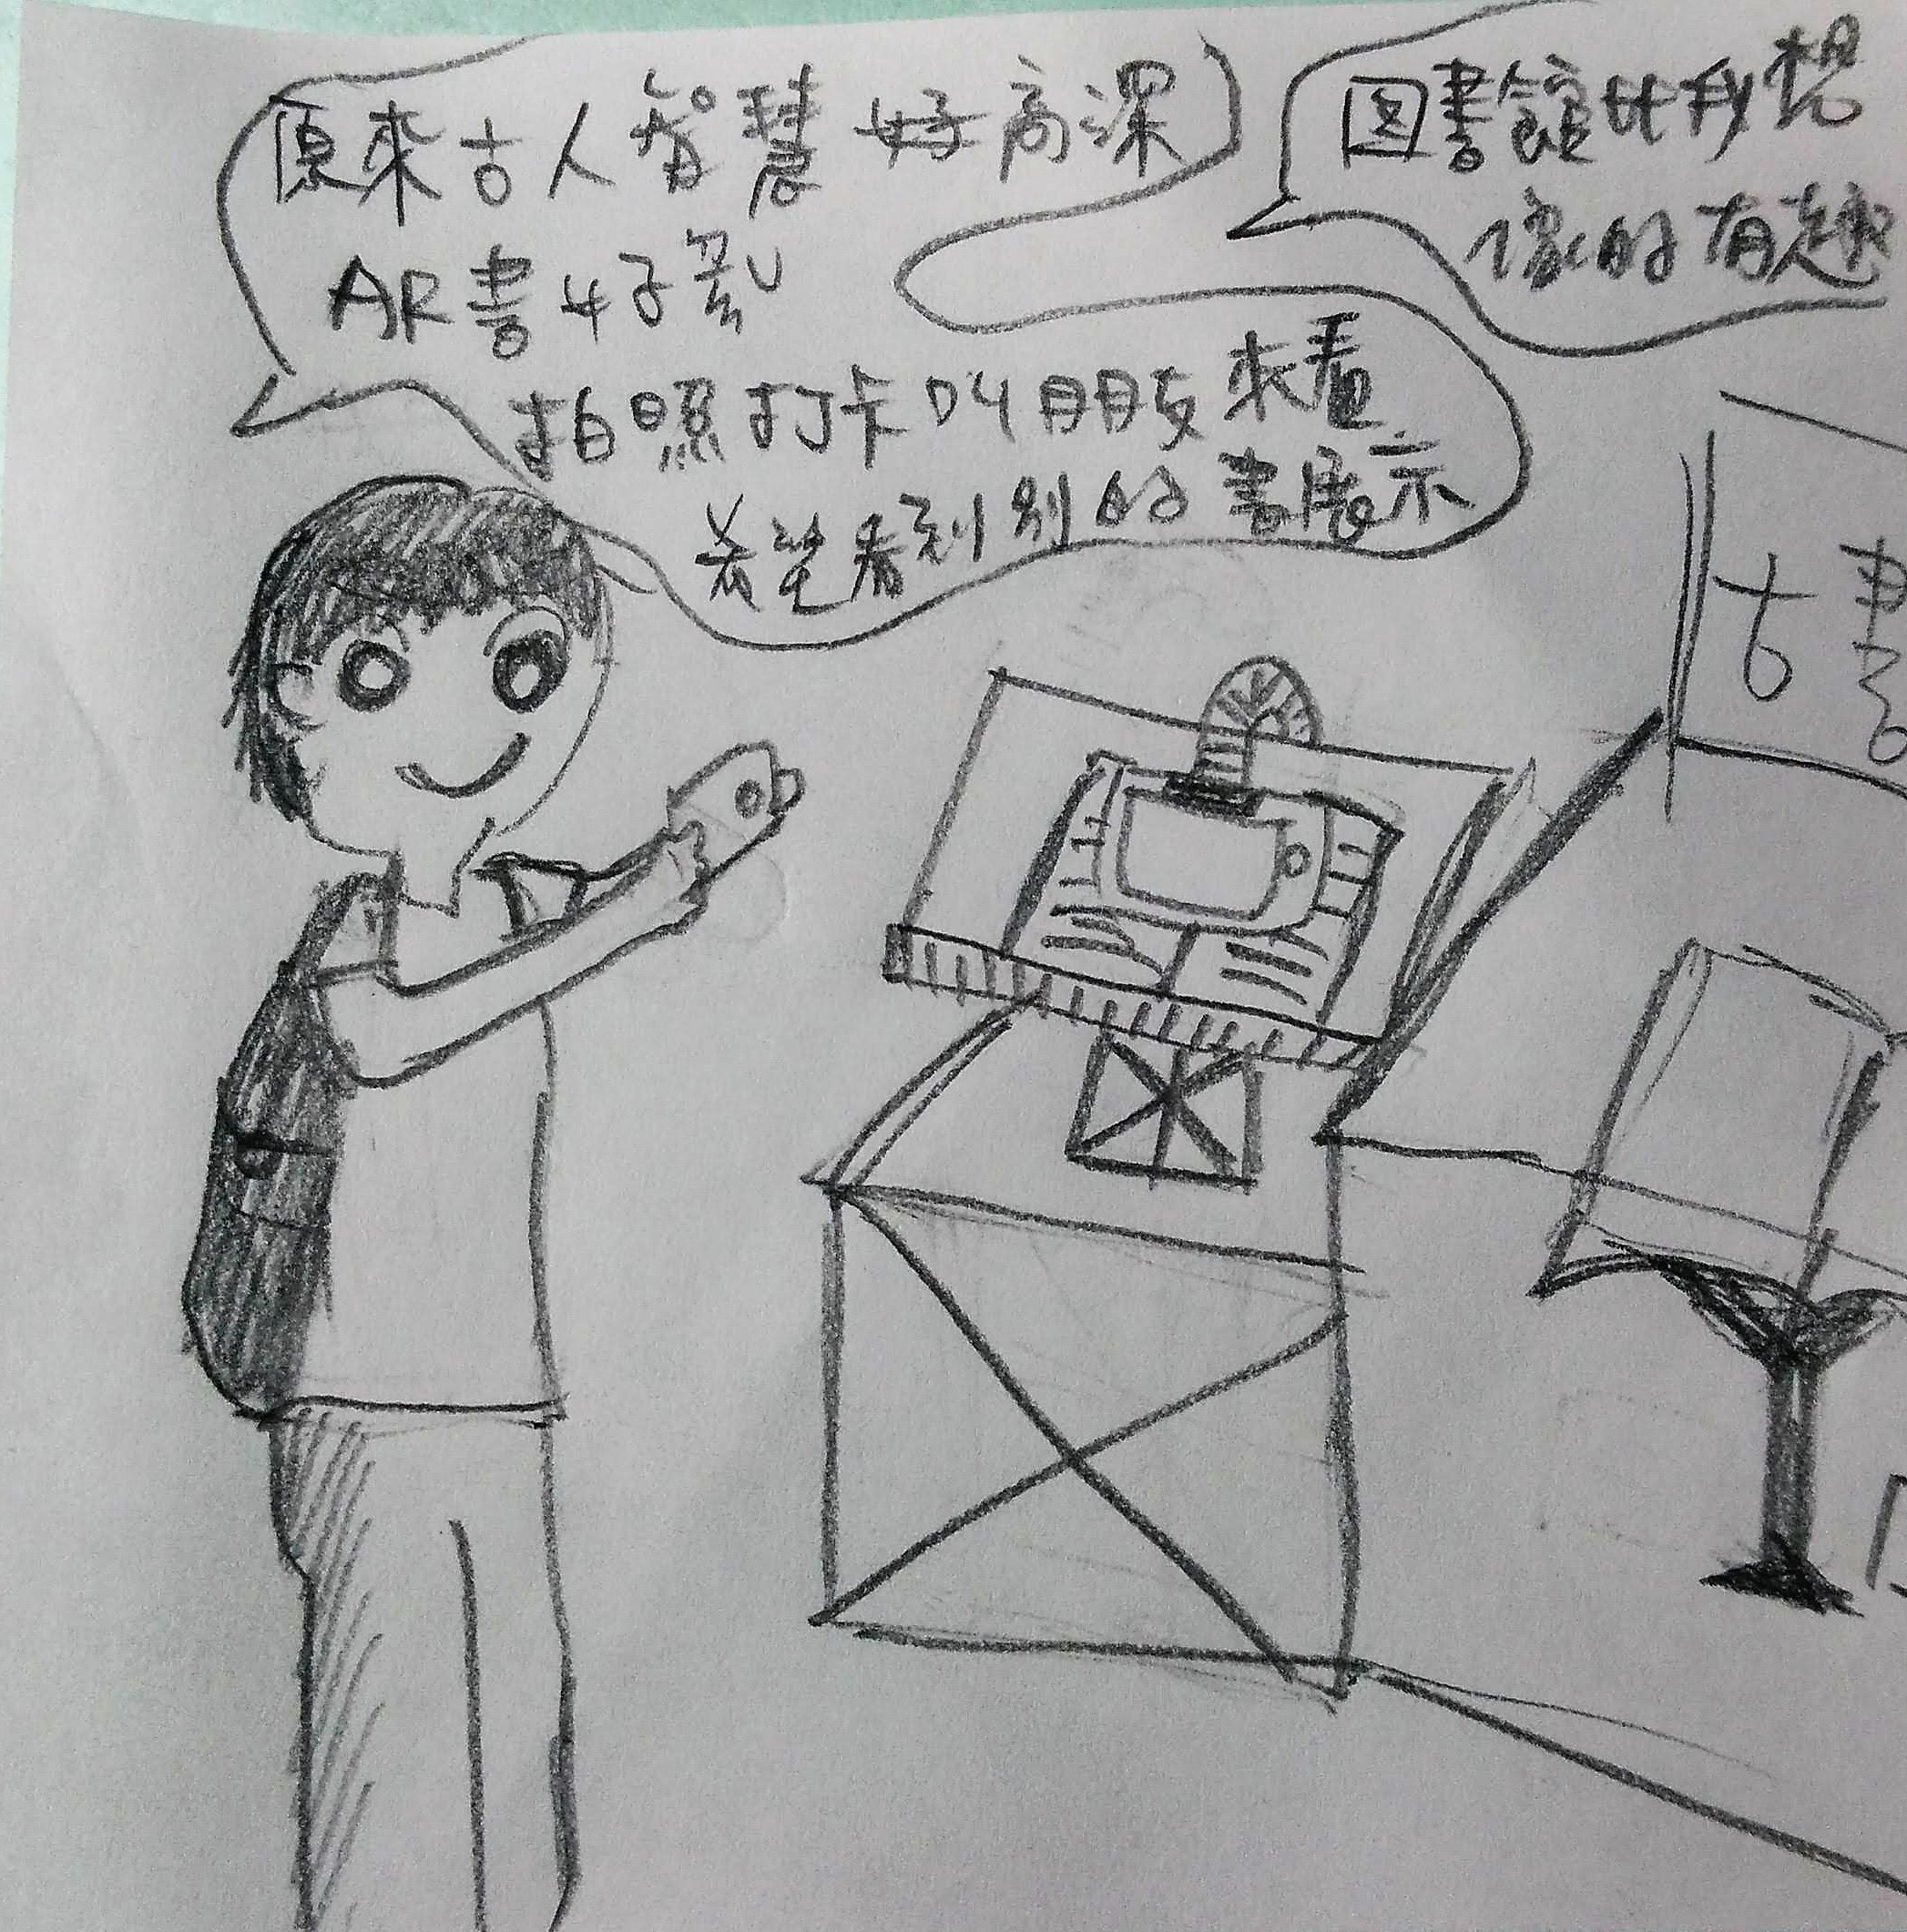 原來古人智慧好高深
AR書好亂
拍照打卡叫朋友來看
希望看到別的書展示
图書館比我想
像的有趣
古書